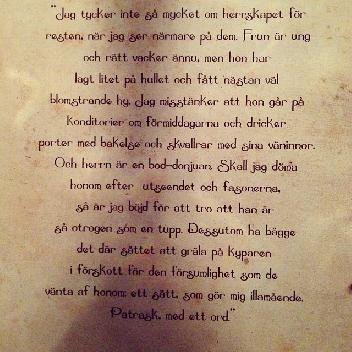 "Jag tycker inte så mycket om herrskapet för
resten, när jag ser närmare på dem. Frun är ung
och rätt vacker ännu, men hon har
lagt litet på hullet och fått nästan väl
blomstrande hy. Jag misstänker att hon går på
konditorier om förmiddagarna och dricker
porter med bakelse och skvallrar med sina väninnor.
Och herrn är en bod-donjuan. Skall jag döma
honom efter utseendet och fasonerna,
så är jag böjd för att tro att han är
så otrogen som en tupp. Dessutom ha bägge
det där sättet att gräla på kyparen
i förskott för den försumlighet som de
vänta af honom: ett sätt, som gör mig illamående.
Patrask, med ett ord."